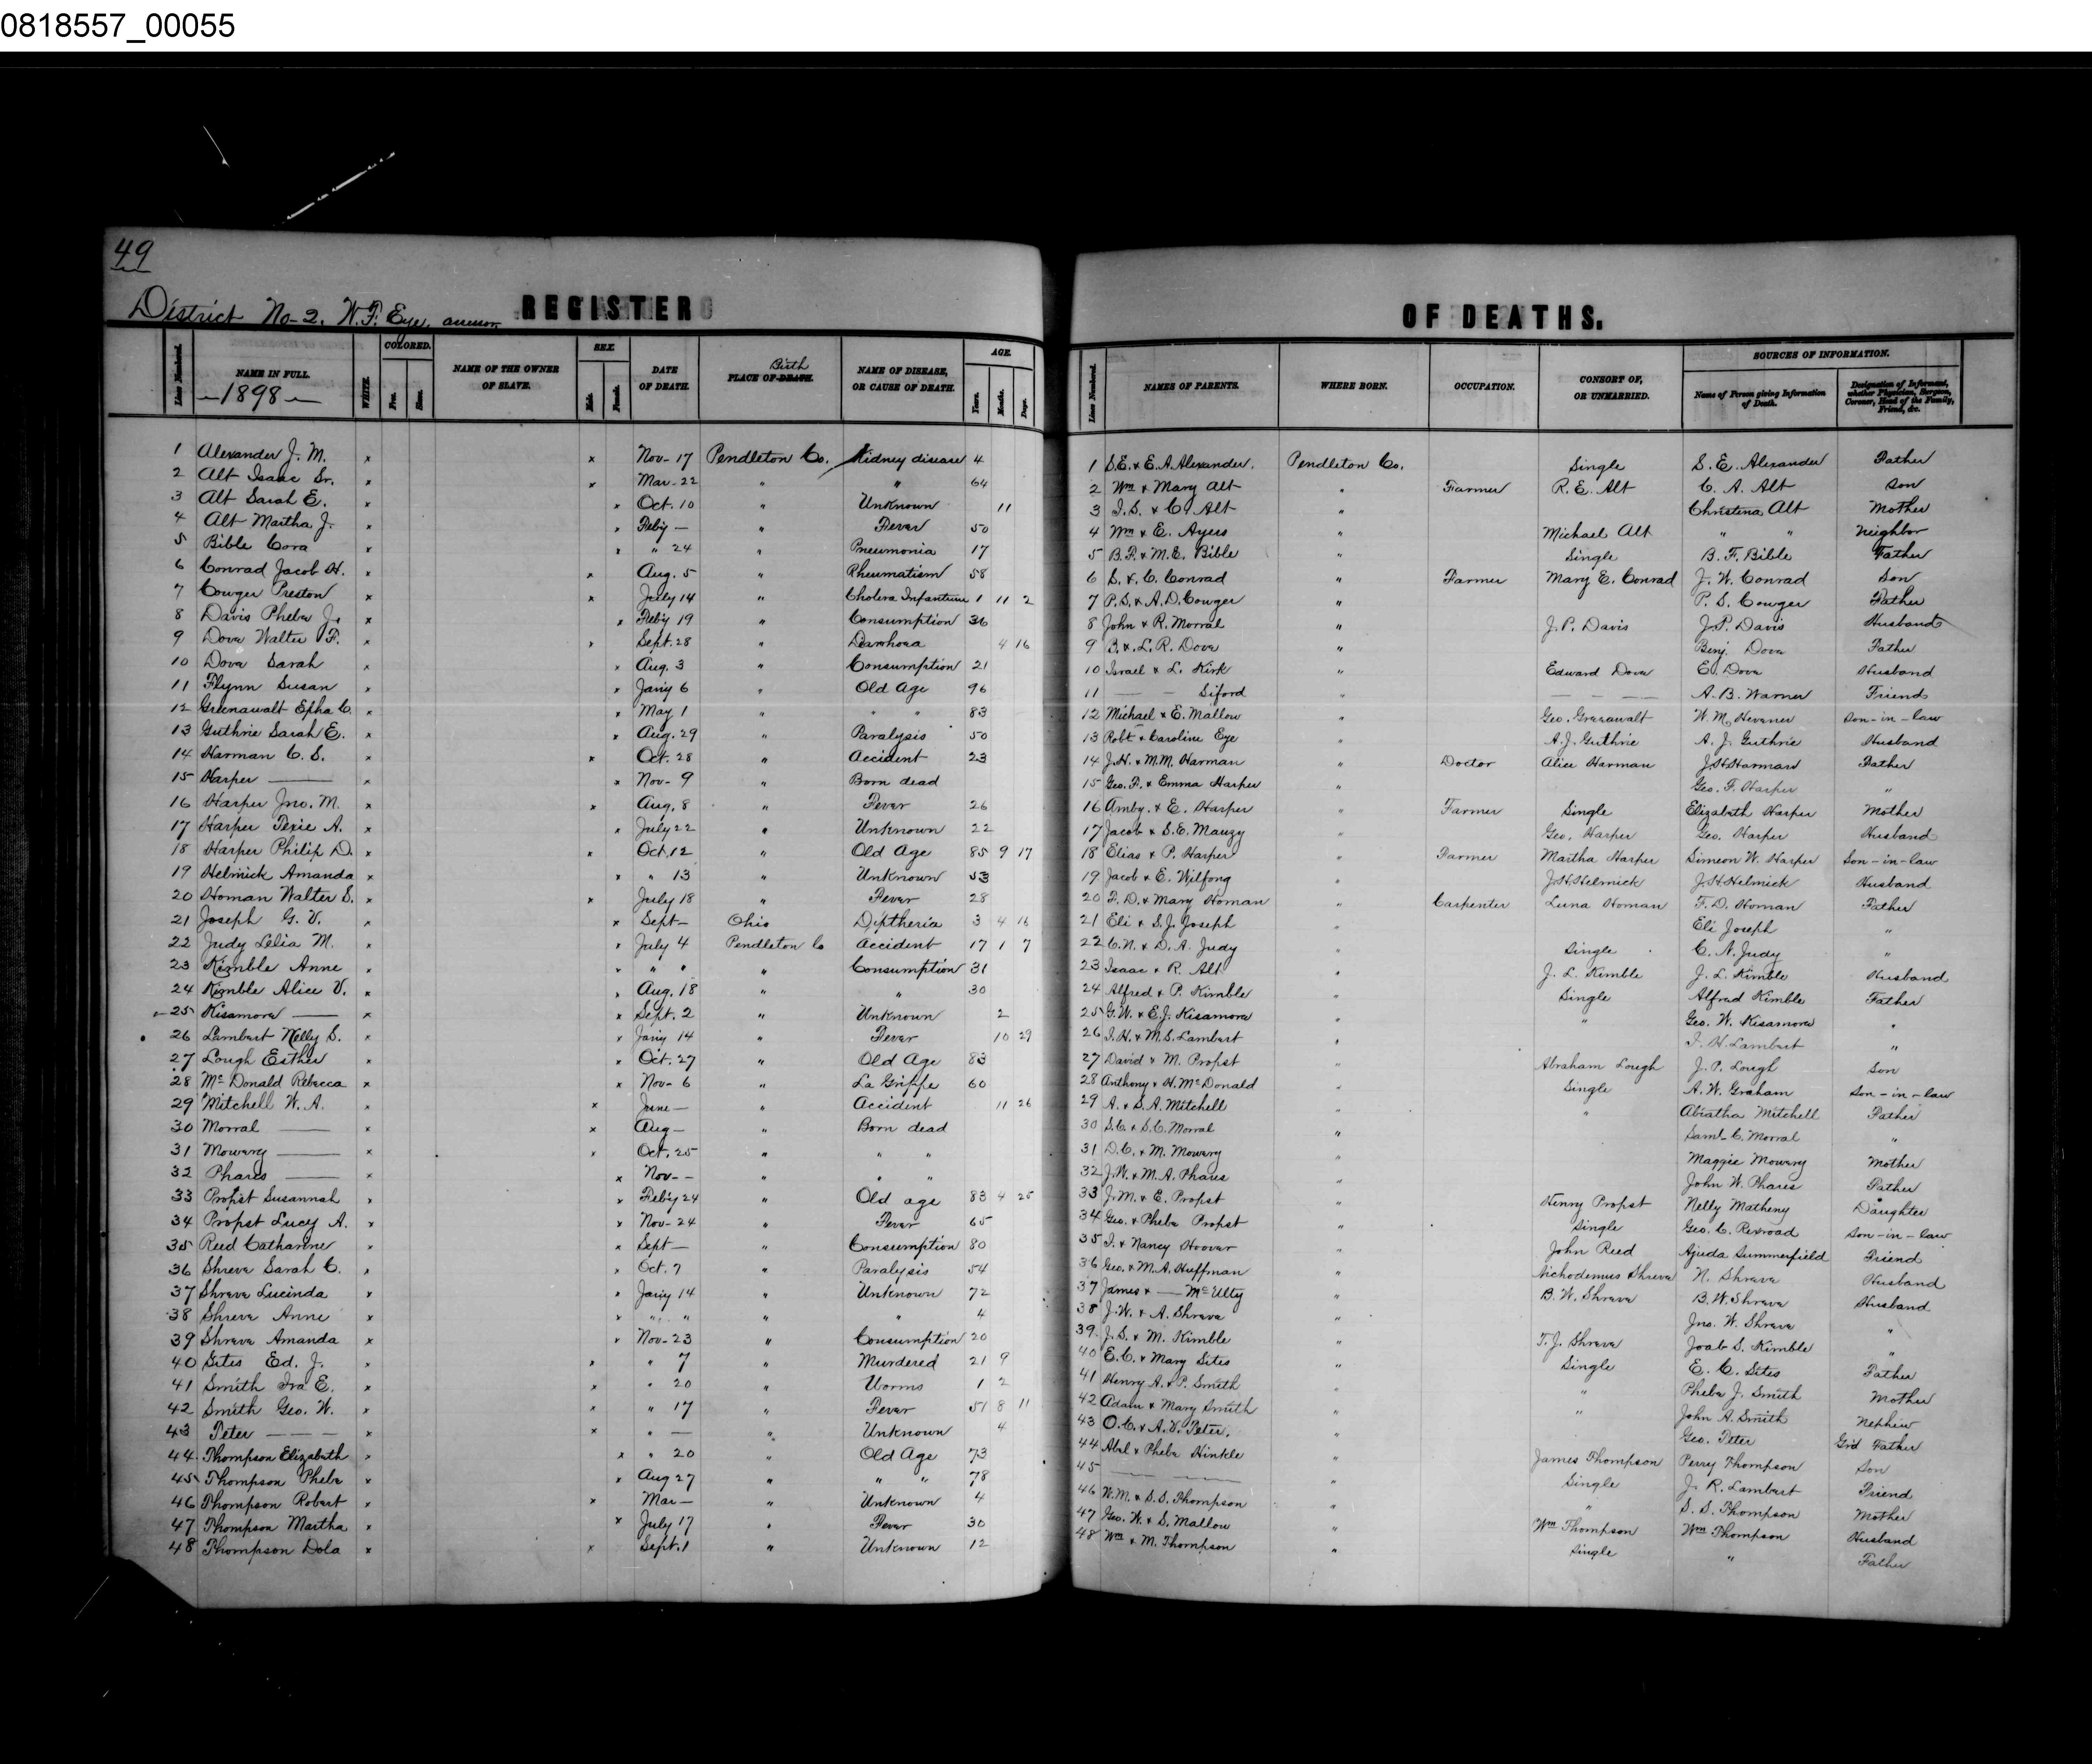 0818557_00055
49
District No-2. W.F. Eye,
REGISTER OF DEATHS.
Lines Numbered. NAME IN FULL. WHITE. COLORED. Free. Slave. NAME OF THE OWNER OF SLAVE. SEX. Male. Female. DATE OF DEATH. PLACE OF DEATH. Birth NAME OF DISEASE, OR CAUSE OF DEATH. AGE. Years. Months. Days. Lines Numbered. NAMES OF PARENTS. WHERE BORN. OCCUPATION. CONSORT OF, OR UNMARRIED. SOURCES OF INFORMATION. Name of Person giving Information of Death. Designation of Informant, whether Physician, Surgeon, Coroner, Head of the Family, Friend, &c.
-1898-
1 Alexander J. M. x x Nov-17 Pendleton Co. Kidney disease 4 1 S.E. & E.A. Alexander. Pendleton Co. Single S. E. Alexander Father
2 Alt Isaac Sr. x x Mar-22 " " 64 2 Wm & Mary Alt " Farmer R. E. Alt C. A. Alt Son
3 Alt Sarah E. x x Oct. 10 " Unknown 11 3 I. S. & C. Alt " Christena Alt Mother
4 Alt Martha J. x x Feby - " Fever 50 4 Wm & E. Ayers " Michael Alt " " Neighbor
5 Bible Cora x x " 24 " Pneumonia 17 5 B.F. & M.E. Bible " Single B. F. Bible Father
6 Conrad Jacob H. x x Aug. 5 " Rheumatism 58 6 S. & C. Conrad " Farmer Mary E. Conrad J. W. Conrad Son
7 Cowger Preston x x July 14 " Cholera Infantum 1 11 2 7 P.S. & A.D. Cowger " P. S. Cowger Father
8 Davis Pheba J. x x Feby 19 " Consumption 36 8 John & R. Morral " J. P. Davis J. P. Davis Husband
9 Dova Walter F. x x Sept. 28 " Diarrhoea 4 16 9 B. & L. R. Dova " Benj. Dova Father
10 Dova Sarah x x Aug. 3 " Consumption 21 10 Israel & L. Kirk " Edward Dova E. Dova Husband
11 Flynn Susan x x Jany 6 " Old Age 96 11 — — Siford " — — — A. B. Warner Friend
12 Greenawalt Epha C. x x May 1 " " " 83 12 Michael & E. Mallow " Geo. Greenawalt W. M. Hevener Son-in-law
13 Guthrie Sarah E. x x Aug. 29 " Paralysis 50 13 Robt & Caroline Eye " A. J. Guthrie A. J. Guthrie Husband
14 Harman C. S. x x Oct. 28 " Accident 23 14 J.H. & M.M. Harman " Doctor Alice Harman J.H. Harman Father
15 Harper — x x Nov- 9 " Born dead 15 Geo. F. & Emma Harper Geo. F. Harper "
16 Harper Jno. M. x x Aug. 8 " Fever 26 16 Amby. & E. Harper " Farmer Single Elizabeth Harper Mother
17 Harper Pexie A. x x July 22 " Unknown 22 17 Jacob & S.E. Mauzy " Geo. Harper Geo. Harper Husband
18 Harper Philip D. x x Oct. 12 " Old Age 85 9 17 18 Elias & P. Harper " Farmer Martha Harper Simeon W. Harper Son-in-law
19 Helmick Amanda x x " 13 " Unknown 53 19 Jacob & E. Wilfong " J.H. Helmick J.H. Helmick Husband
20 Homan Walter S. x x July 18 " Fever 28 20 F. D. & Mary Homan " Carpenter Luna Homan F. D. Homan Father
21 Joseph G. V. x x Sept- Ohio Diptheria 3 4 16 21 Eli & S. J. Joseph " Eli Joseph "
22 Judy Lelia M. x x July 4 Pendleton Co Accident 17 1 7 22 C. N. & D. A. Judy " Single C. N. Judy "
23 Kimble Anne x x " " " Consumption 31 23 Isaac & R. Alt " J. L. Kimble J. L. Kimble Husband
24 Kimble Alice V. x x Aug. 18 " " 30 24 Alfred & P. Kimble " Single Alfred Kimble Father
25 Kisamora — x x Sept. 2 " Unknown 2 25 G.W. & E.J. Kisamora " " Geo. W. Kisamora "
26 Lambert Nelly S. x x Jany 14 " Fever 10 29 26 I. H. & M.S. Lambert " I. H. Lambert "
27 Lough Esther x x Oct. 27 " Old Age 83 27 David & M. Propst " Abraham Lough J. P. Lough Son
28 McDonald Rebecca x x Nov- 6 " La Grippe 60 28 Anthony & H. McDonald " Single A. W. Graham Son-in-law
29 Mitchell W. A. x x June- " Accident 11 26 29 A. & S. A. Mitchell " " Abiatha Mitchell Father
30 Morral — x x Aug- " Born dead 30 S.C. & S.C. Morral " Saml. C. Morral "
31 Mowery — x x Oct. 25 " " " 31 D. C. & M. Mowery " Maggie Mowery Mother
32 Phares — x x Nov-- " " " 32 J. W. & M. A. Phares " John W. Phares Father
33 Propst Susannah x x Feby 24 " Old age 83 4 25 33 J. M. & E. Propst " Henry Propst Nelly Matheny Daughter
34 Propst Lucy A. x x Nov-24 " Fever 65 34 Geo. & Pheba Propst " Single Geo. C. Rexroad Son-in-law
35 Reed Catharine x x Sept- " Consumption 80 35 I. & Nancy Hoover " John Reed Ajuda Summerfield Friend
36 Shreve Sarah C. x x Oct. 7 " Paralysis 54 36 Geo. & M.A. Huffman " Nichodemus Shreve N. Shreve Husband
37 Shreve Lucinda x x Jany 14 " Unknown 72 37 James & — McUlty " B. W. Shreve B. W. Shreve Husband
38 Shreve Anne x x " " " " 4 38 J. W. & A. Shreve " Jno. W. Shreve "
39 Shreve Amanda x x Nov-23 " Consumption 20 39. J. S. & M. Kimble " T. J. Shreve Joab S. Kimble "
40 Sites Ed. J. x x " 7 " Murdered 21 9 40 E. C. & Mary Sites " Single E. C. Sites Father
41 Smith Ira E. x x " 20 " Worms 1 2 41 Henry A. & P. Smith " " Pheba J. Smith Mother
42 Smith Geo. W. x x " 17 " Fever 51 8 11 42 Adam & Mary Smith " " John A. Smith Nephew
43 Peter — — — x x " — " Unknown 4 43 O. C. & A. V. Peter. " Geo. Peter Grd Father
44. Thompson Elizabeth x x " 20 " Old Age 73 44 Abel & Pheba Hinkle " James Thompson Perry Thompson Son
45 Thompson Pheba x x Aug 27 " " " 78 45 — — " Single J. R. Lambert Friend
46 Thompson Robert x x Mar- " Unknown 4 46 W.M. & S.S. Thompson " " S. S. Thompson Mother
47 Thompson Martha x x July 17 " Fever 30 47 Geo. W. & S. Mallow " Wm Thompson Wm Thompson Husband
48 Thompson Dola x x Sept. 1 " Unknown 12 48 Wm & M. Thompson " Single " Father